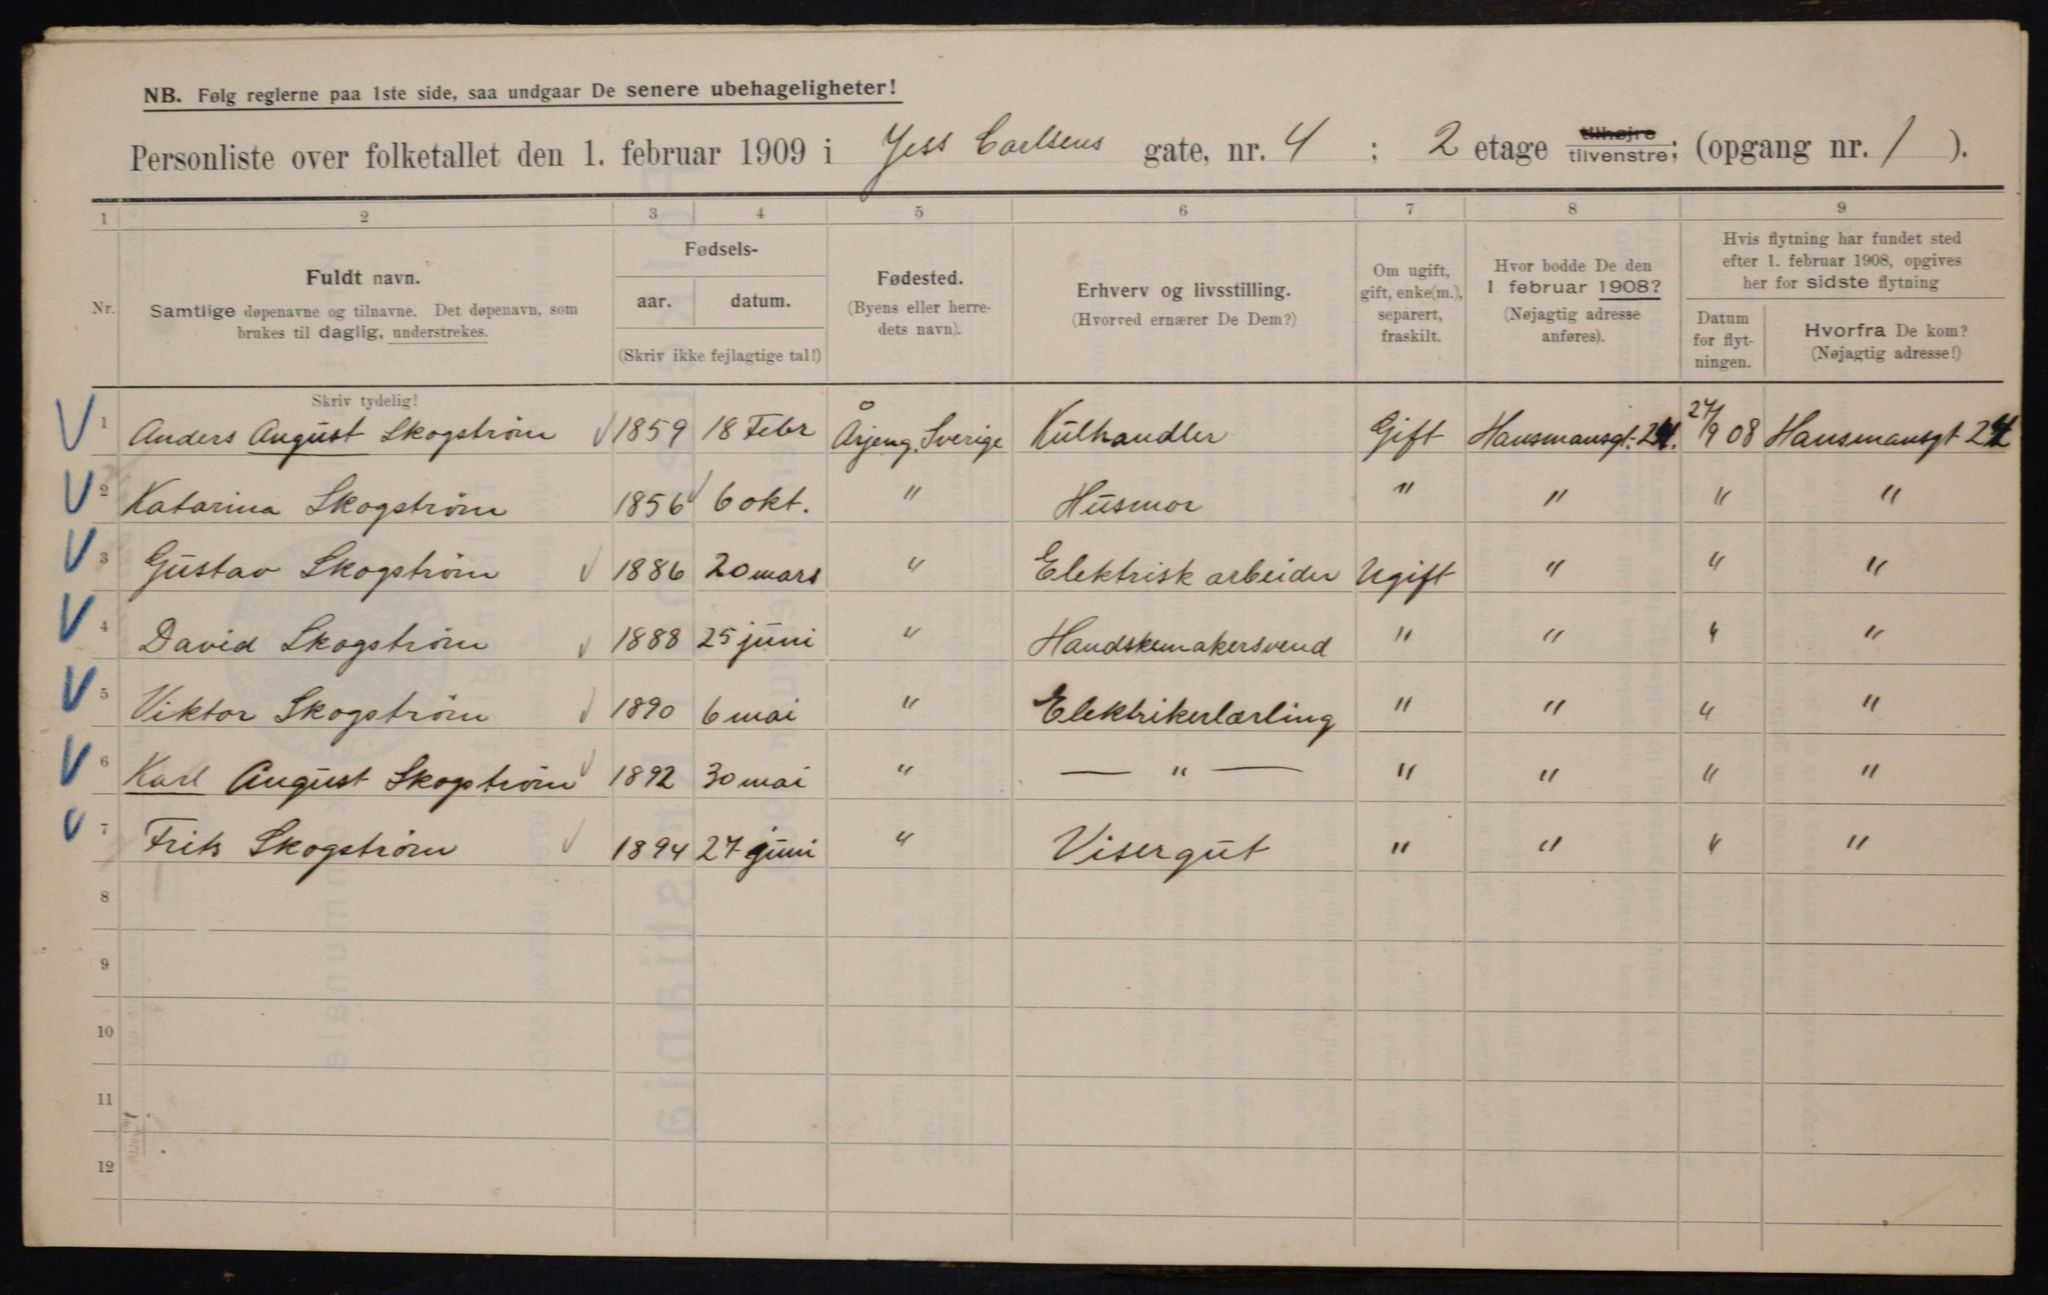 NB. Følg reglerne paa 1ste side, saa undgaar De senere ubehageligheter!
Personliste over folketallet den 1. februar 1909 i Jess Carlsens gate, nr. 4 ; 2 etage tilhøjre/tilvenstre; (opgang nr. 1 ).
1 2 3 4 5 6 7 8 9
Nr.
Fuldt navn.
Samtlige døpenavne og tilnavne. Det døpenavn, som
brukes til daglig, understrekes.
Fødsels-
aar. datum.
(Skriv ikke fejlagtige tal!)
Fødested.
(Byens eller herre-
dets navn).
Erhverv og livsstilling.
(Hvorved ernærer De Dem?)
Om ugift,
gift, enke(m.),
separert,
fraskilt.
Hvor bodde De den
1. februar 1908?
(Nøjagtig adresse
anføres).
Hvis flytning har fundet sted
efter 1. februar 1908, opgives
her for sidste flytning
Datum
for flyt-
ningen.
Hvorfra De kom?
(Nøjagtig adresse!)
Skriv tydelig!
1 Anders August Skogstrøm 1859 18 Febr Årjeng. Sverige Kulhandler Gift Hausmansgt. 24. 27/9 08 Hausmansgt 24
2 Katarina Skogstrøm 1856 6 okt. " Husmor " " " "
3 Gustav Skogstrøm 1886 20 mars " Elektrisk arbeider Ugift " " "
4 David Skogstrøm 1888 25 juni " Handskemakersvend " " " "
5 Viktor Skogstrøm 1890 6 mai " Elektrikerlærling " " " "
6 Karl August Skogstrøm 1892 30 mai " — " — " " " "
7 Frits Skogstrøm 1894 27 juni " Visergut " " " "
8
9
10
11
12